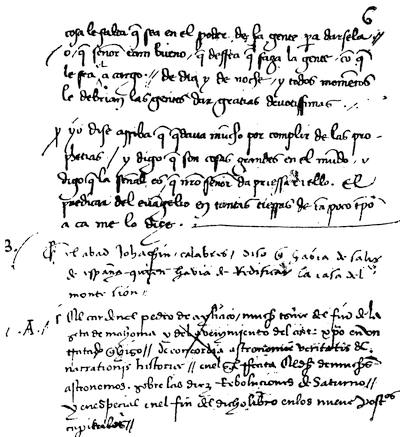 6
cosa le falta q̃ sea en el poder de la gente p̃a darsela //
o / q̃ señor tam bueno / q̃ dessea q̃ faga la gente / co q̃
le sea a cargo // de dia y de noche / y todos momentos
le debrian las gentes dar gratias devotissimas . / .
yo dise arriba q̃ quedava mucho por complir de las pro-
phetias / y digo q̃ son cosas grandes en el mundo / y
digo q̃ la señal es q̃ nr̃o señor da priessa ello . El
predicar del evagelio en tantas tierras de tã poco tp̃o
a ca me lo dice .
3. / El abad Johachin / calabres / diso q̃ havia de salir
de españa quien havia de Redificar la casa del
monte sion /
. A . / El cardenal pedro de ayliaco / mucho del fin de la
seta de mahoma y del avenimiento del en vn
tratado q̃ hizo // de concordia astronomie veritatis et
narrationis historice // en el de muchos
astronomos / sobre las diez Revoluciones de Saturno /
y en especial en el fin del dicho libro en los nueve
capitulos //